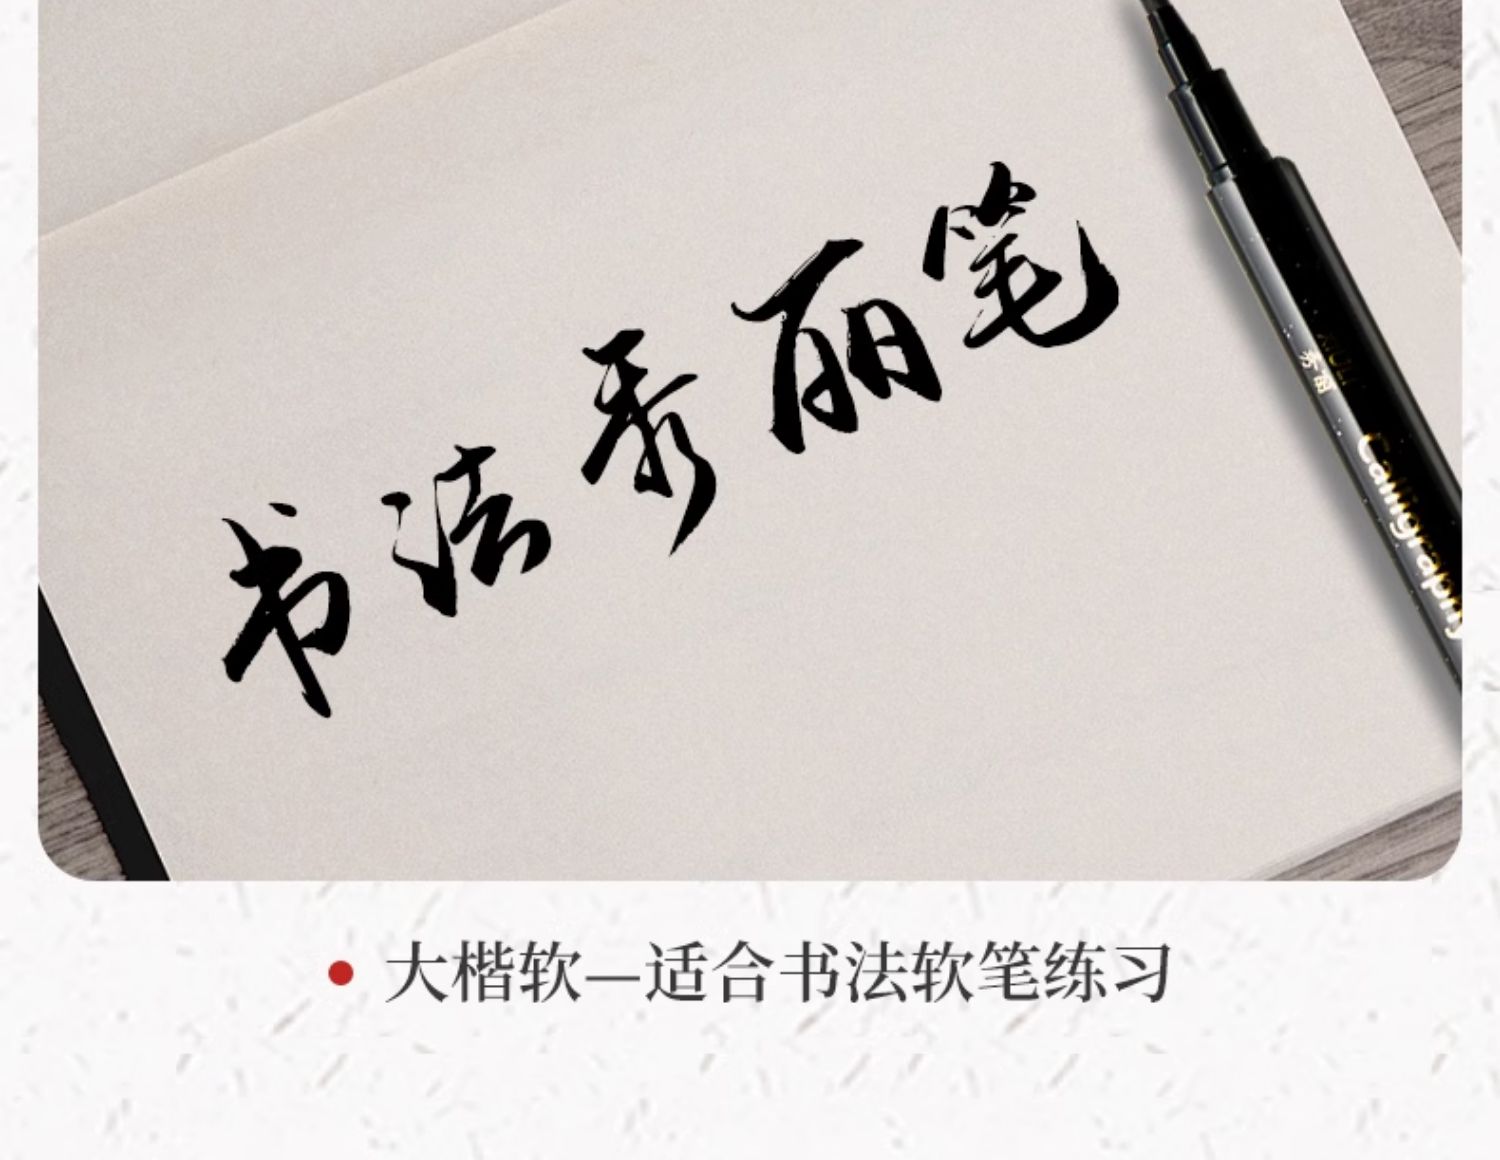 书法秀丽笔
XIULI
秀丽
Calligraphy
大楷软—适合书法软笔练习